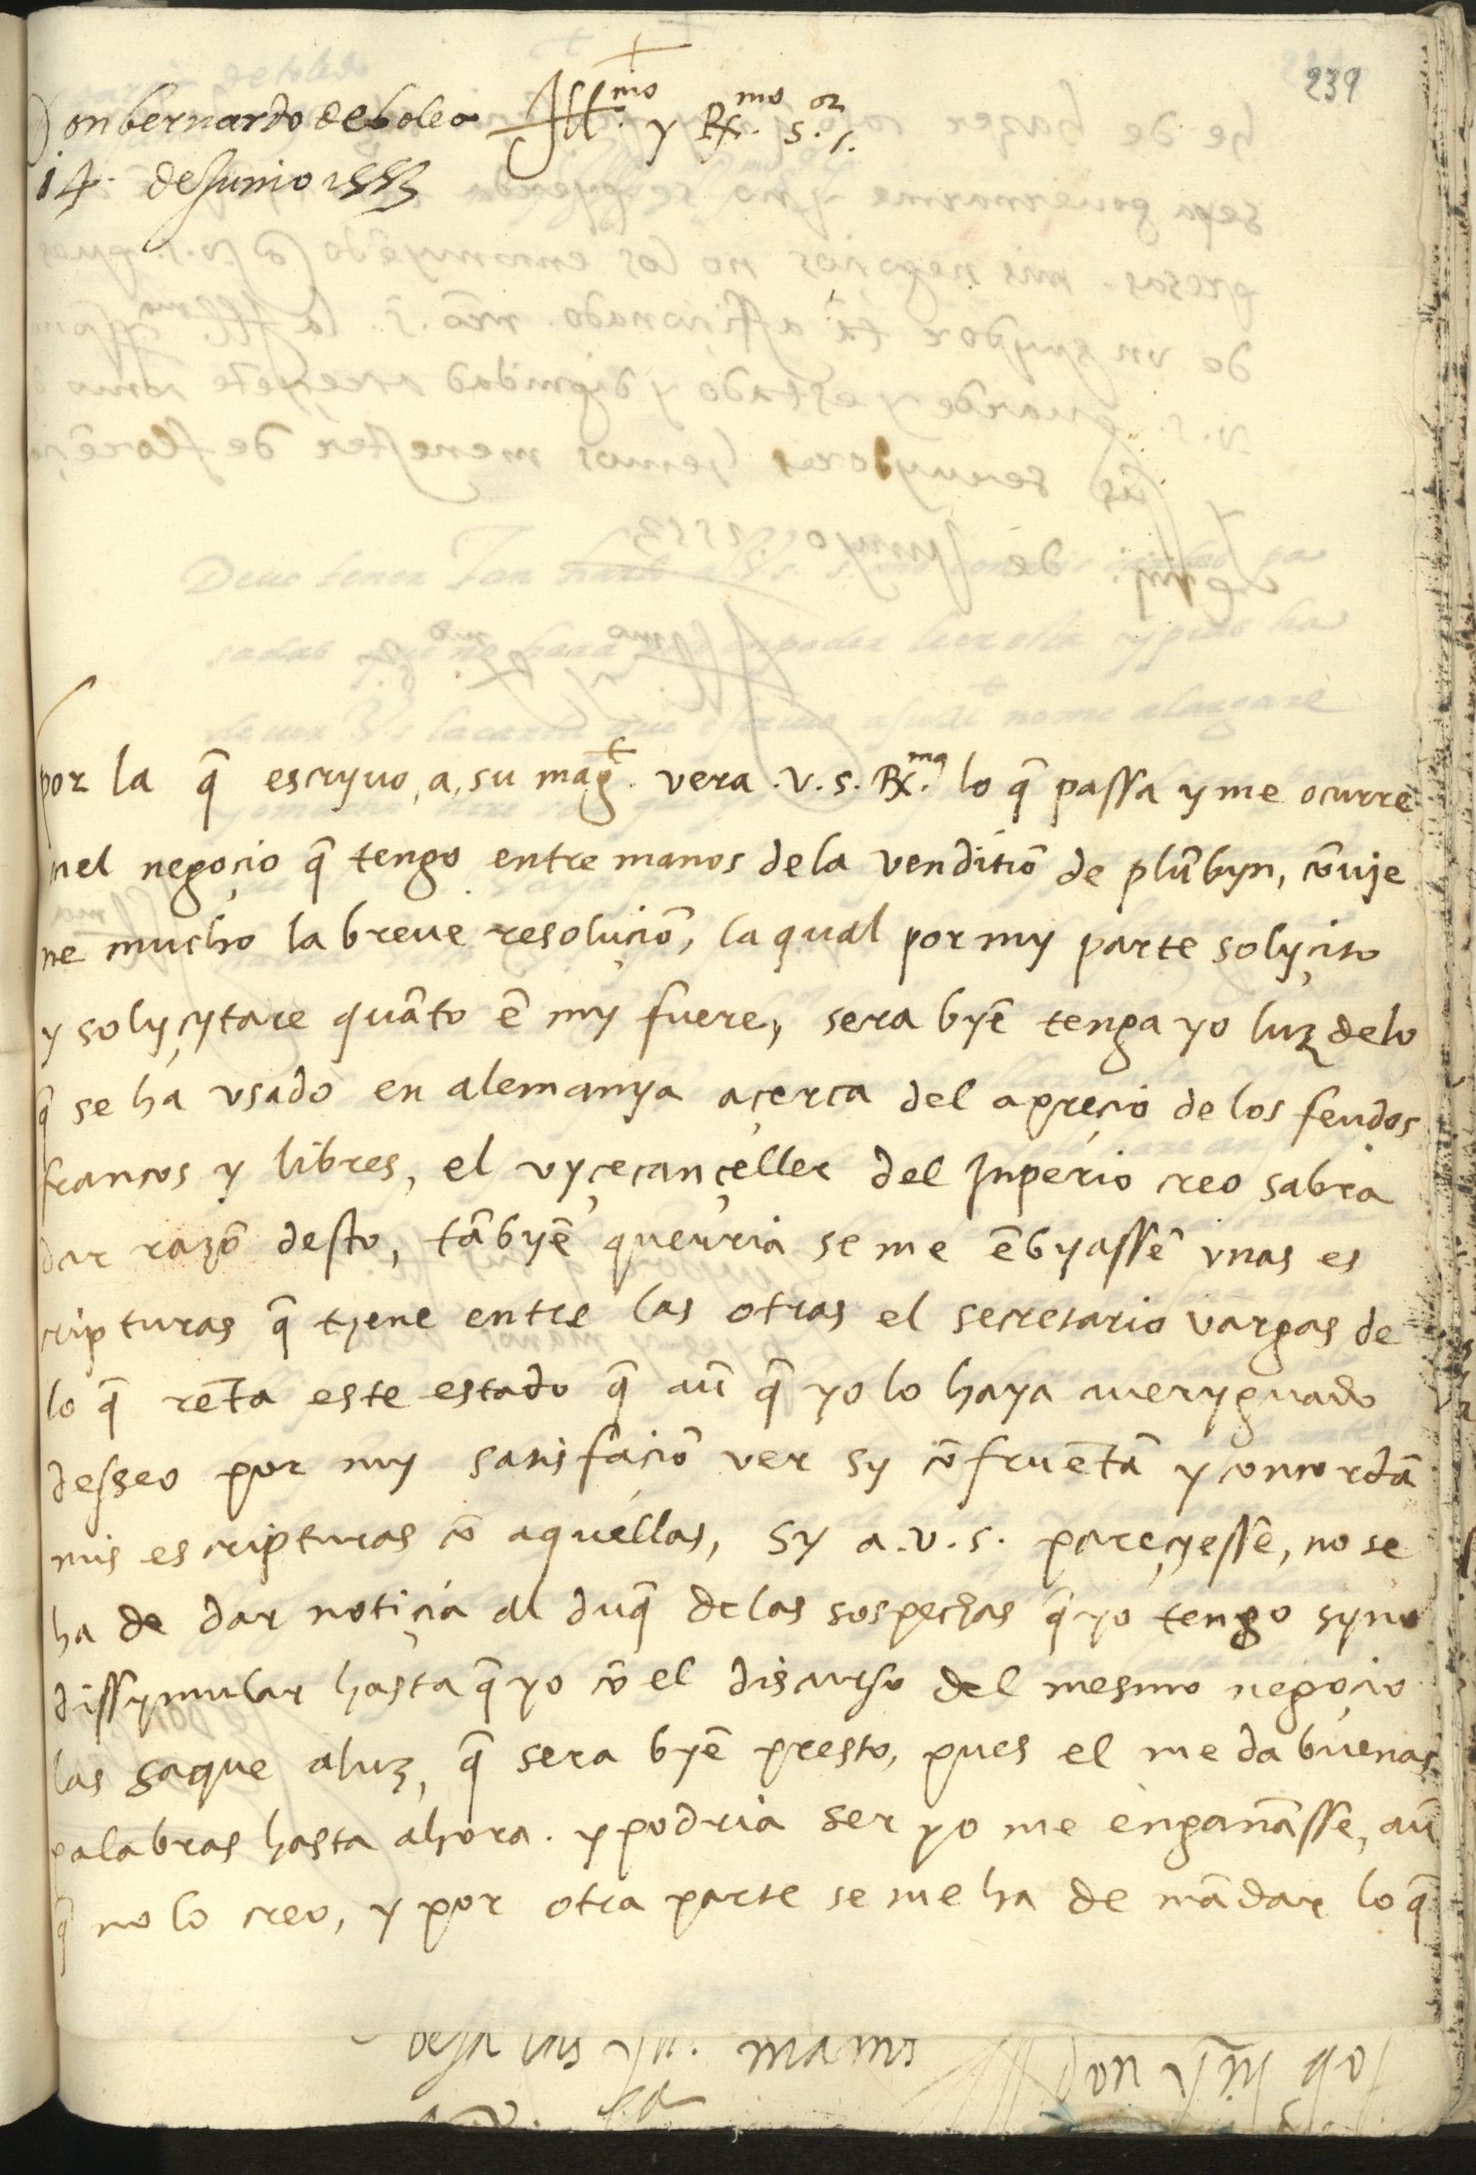 239
Don bernardo de bolea
14. de Junio 1553
+
Ill.mo y Rx.mo s.or
por la q̃ escryuo, a, su mag.t vera .v.s. Rx.ma lo q̃ passa y me ocurre
nel negoçio q̃ tengo entre manos de la venditiõ de plũbyn, cõuje
ne mucho la breue resoluçiõ, la qual por my parte solyçito
y solyçytare quãto ẽ my fuere, sera byẽ tenga yo luz de lo
q̃ se ha vsado en alemanya açerca del apreçio de los feudos
francos y libres, el vyçecançeller del Jnperio creo sabra
dar razõ desto, tãbyẽ querria se me ẽbyassẽ vnas es
cripturas q̃ tyene entre las otras el secretario vargas de
lo q̃ rẽta este estado q̃ aũ q̃ yo lo haya aueryguado
desseo por my satisfaciõ ver sy cõfruẽtã y concordã
mis escripturas cõ aquellas, Sy a.v.s. pareçyesse, no se
ha de dar notiçia al duq̃ de las sospechas q̃ yo tengo syno
dissymular hasta q̃ yo cõ el discurso del mesmo negoçio
las saque a luz, q̃ sera byẽ presto, pues el me da buenas
palabras hasta ahora. y podria ser yo me engañasse, aũ
q̃ no lo creo, y por otra parte se me ha de mãdar lo q̃
besa las manos